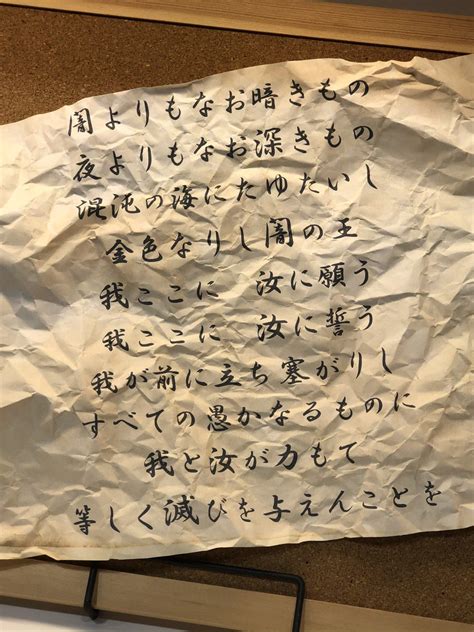 闇よりもなお暗きもの
夜よりもなお深きもの
混沌の海にたゆたいし
金色なりし闇の王
我ここに 汝に願う
我ここに 汝に誓う
我が前に立ち塞がりし
すべての愚かなるものに
我と汝が力もて
等しく滅びを与えんことを